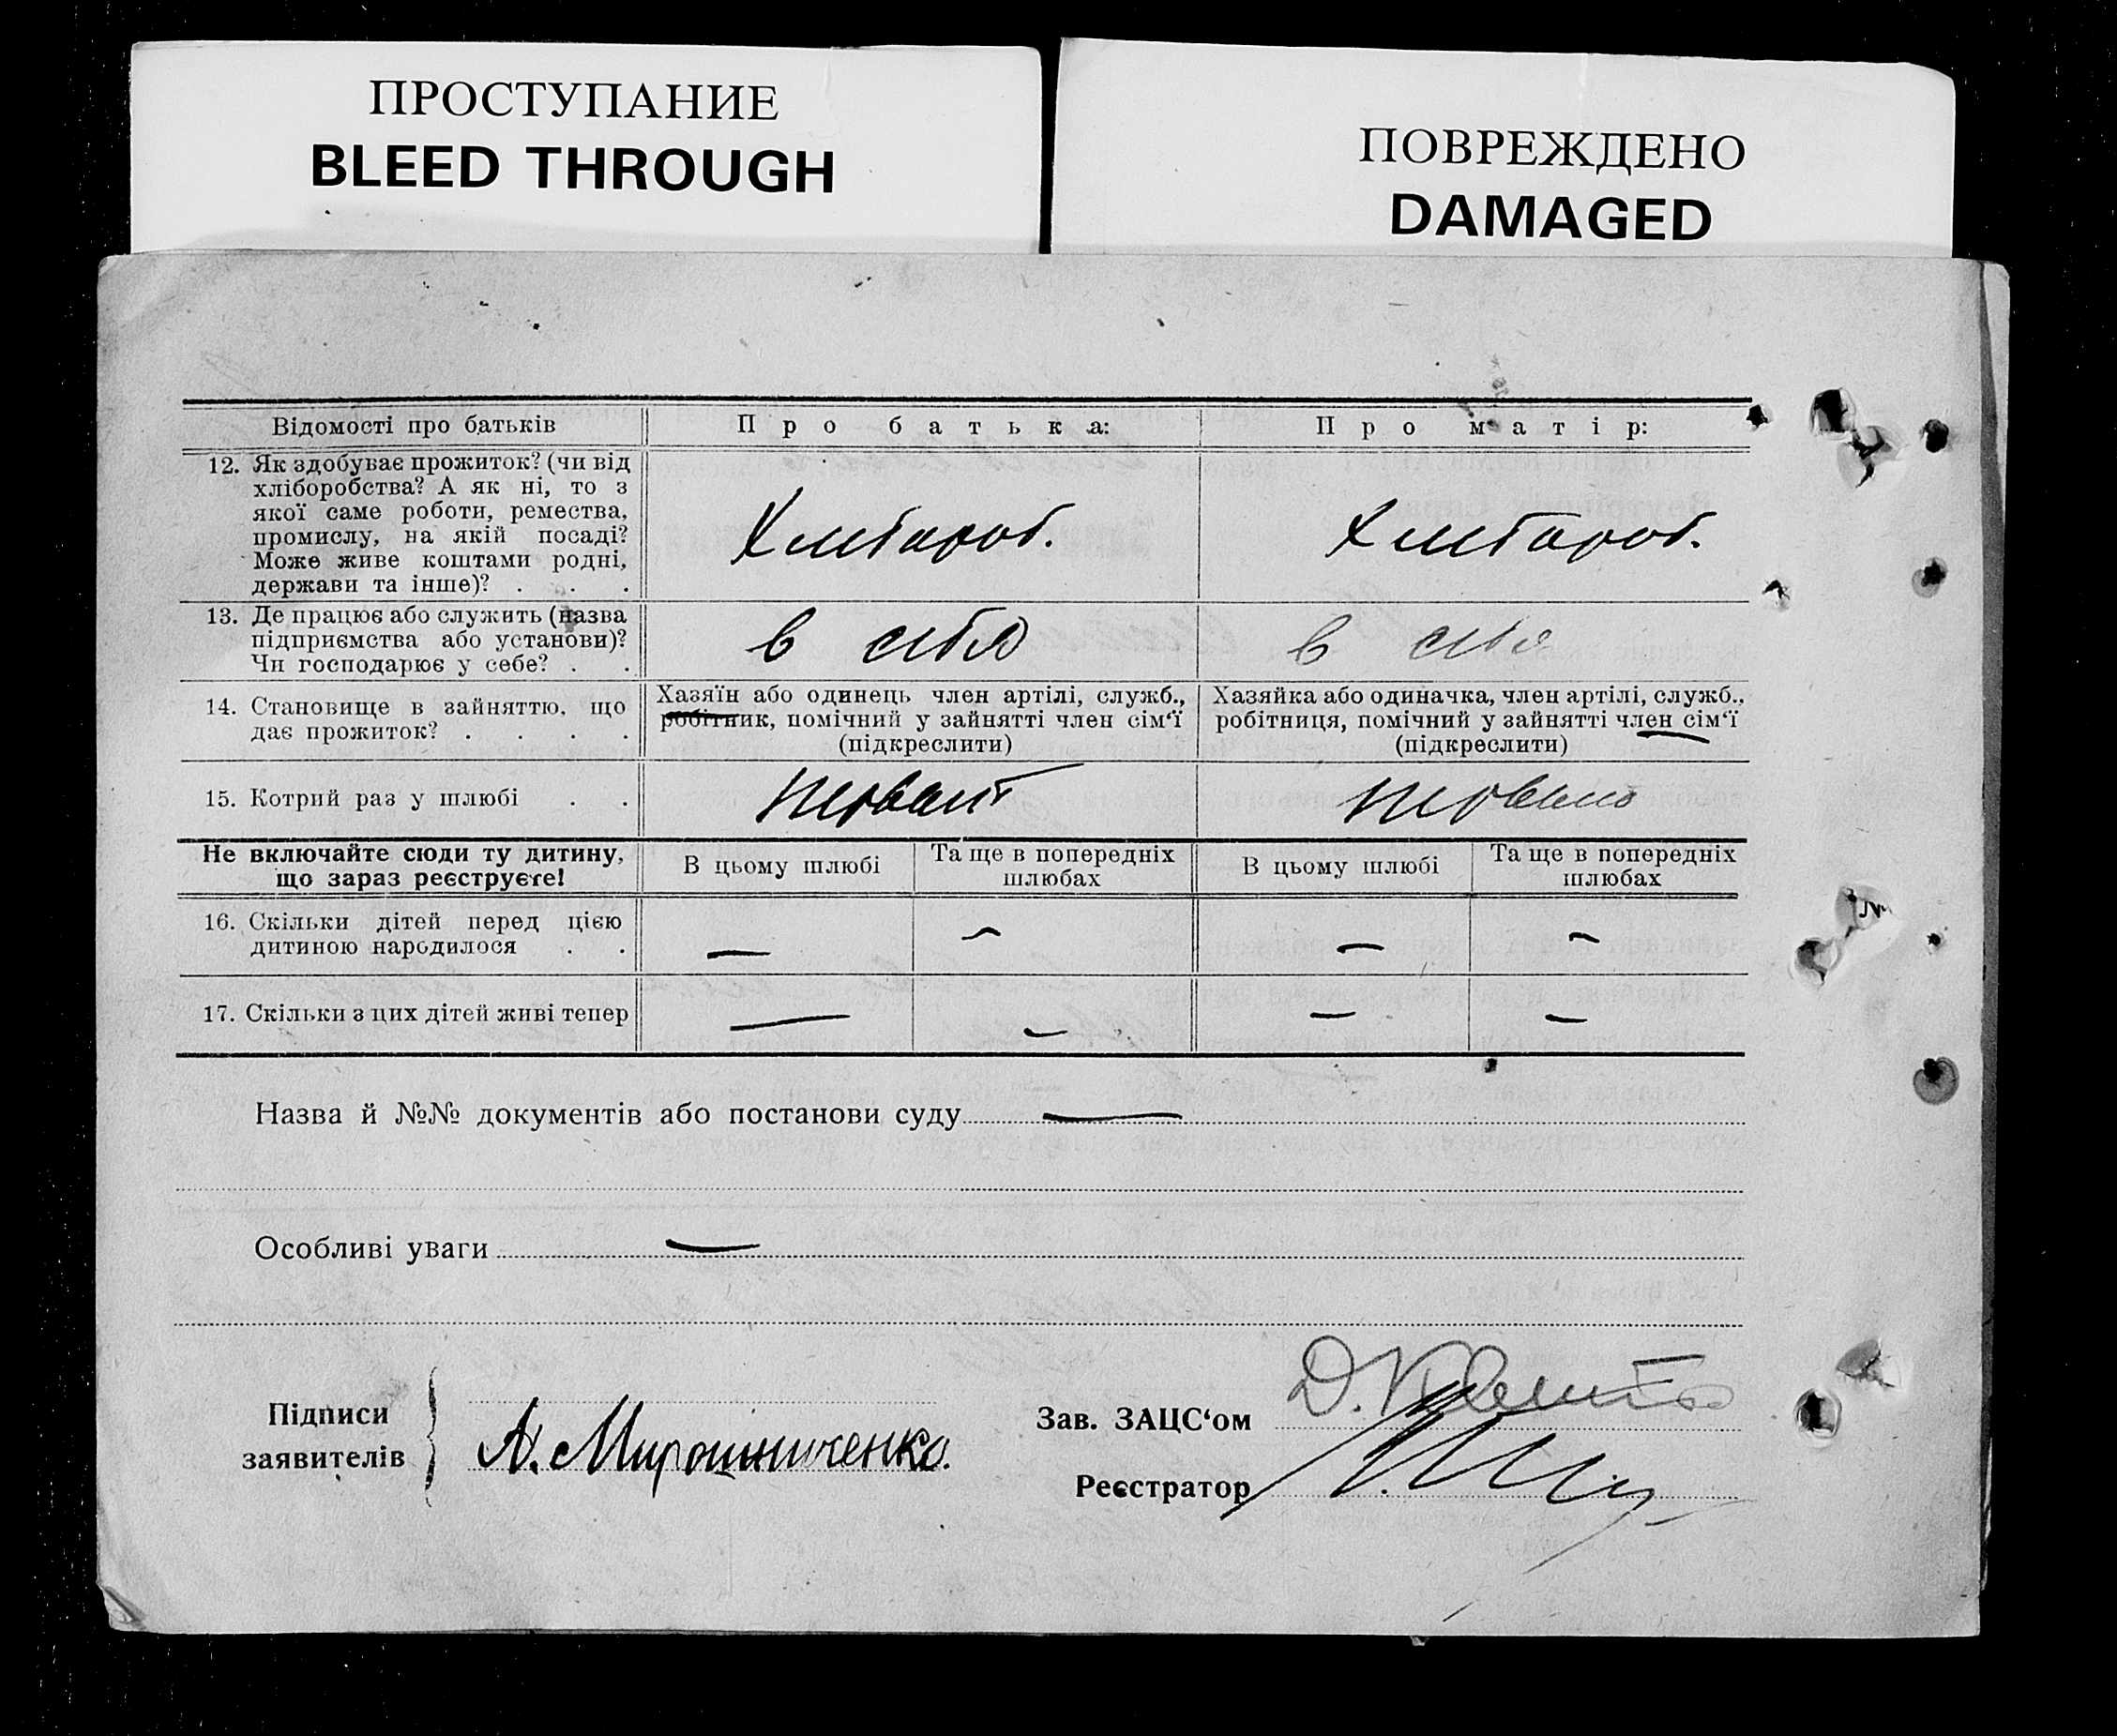 ПРОСТУПАНИЕ
BLEED THROUGH
ПОВРЕЖДЕНО
DAMAGED
Відомості про батьків
Про батька:
Про матір:
12. Як здобуває прожиток? (чи від
хліборобства? А як ні, то з
якої саме роботи, ремества,
промислу, на якій посаді?
Може живе коштами родні,
держави та інше)? . . .
Хлібороб.
Хлібороб.
13. Де працює або служить (назва
підприємства або установи)?
Чи господарює у себе? . .
в себя
в себя
14. Становище в зайняттю, що
дає прожиток? . . . .
Хазяїн або одинець член артілі, служб.,
робітник, помічний у зайнятті член сім'ї
(підкреслити)
Хазяйка або одиначка, член артілі, служб.,
робітниця, помічний у зайнятті член сім'ї
(підкреслити)
15. Котрий раз у шлюбі . .
Не включайте сюди ту дитину,
що зараз реєструєте!
В цьому шлюбі
Та ще в попередніх
шлюбах
В цьому шлюбі
Та ще в попередніх
шлюбах
16. Скільки дітей перед цією
дитиною народилося . .
— — — —
17. Скільки з цих дітей живі тепер
— — — —
Назва й №№ документів або постанови суду —
Особливі уваги —
Підписи
заявителів
А. Мирошниченко.
Зав. ЗАЦС'ом
Реєстратор